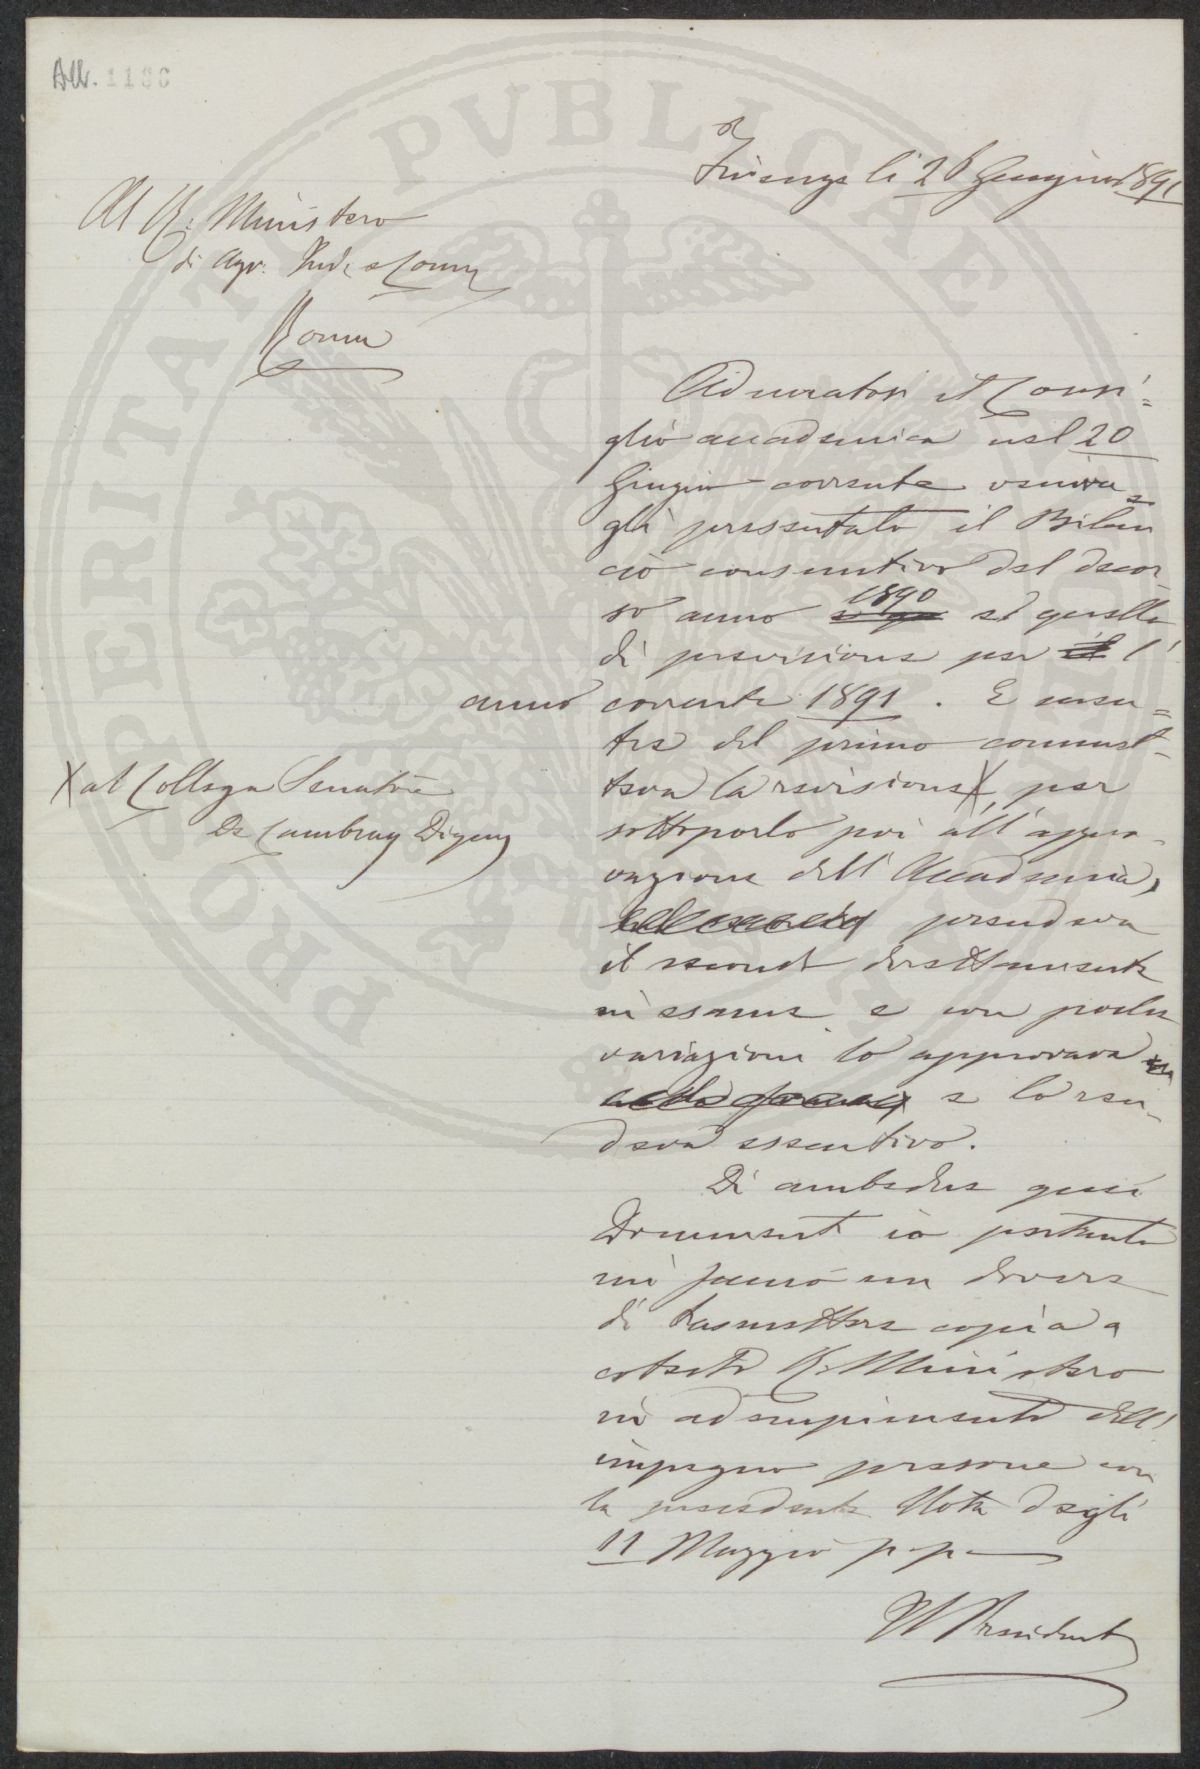 All. 1180
Firenze li 26 Giugno 1891
Al R. Ministero
di Agr. Ind. e Comm
Roma
Adunatosi il Consi=
glio accademico nel 20
Giugno corrente veniva=
gli presentato il Bilan
cio consuntivo del decor-
so anno 1890 e quello
di previsione per il l'
anno corrente 1891. E men=
tre del primo commet-
teva la revisione X per
X al Collega Senatore
De Cambray Digny
sottoporlo poi all'appro-
vazione dell'Accademia,
prendeva
il secondo direttamente
in esame e con poche
variazioni lo approvava
e lo ren-
deva esecutivo.
Di ambedue questi
Documenti io pertanto
mi faccio un dovere
di trasmettere copia a
cotesto R. Ministero
in adempimento dell'
impegno preso con
la precedente Nota degli
11 Maggio p.p.
Il Presidente
PROSPERITATI PVBLICAE